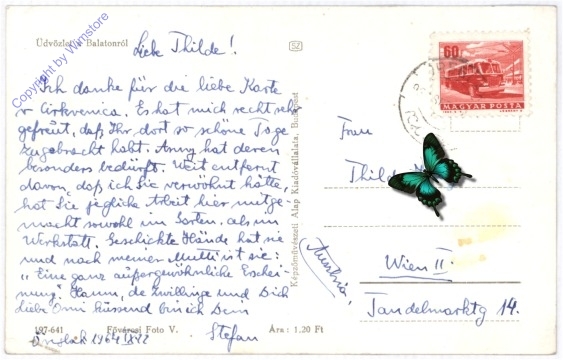 Üdvözlet a Balatonról
Liebe Thilde!
SZ
60
MAGYAR POSTA
Copyright by Wimstore
Ich danke für die liebe Karte
v Cirkvenica. Es hat mich recht sehr
gefreut, daß Ihr dort so schöne Tage
zugebracht habt. Anny hat deren
besonders bedürft. Weit entfernt
davon, daß ich Sie verwöhnt hätte,
hat Sie jegliche Arbeit hier mitge-
macht sowohl im Garten, als im
Werkstatt. Geschickte Hände hat sie
und nach meiner Mutti ist sie:
"Eine ganz außergewöhnliche Erschei-
nung". Hanni, de Zwillinge und Dich
liebe Omi küssend bin ich Dein
Stefan
1964 IX 22
197-641
Fővárosi Foto V.
Ára: 1,20 Ft
Képzőművészeti Alap Kiadóvállalata, Budapest
Frau
Thilde
Wien II.
Tandelmarktg 14.
Austria,